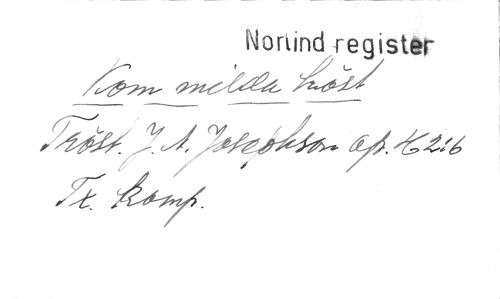 Norlind register
Kom milda höst
Tröst. J. A. Josephson op. 42:6
Tx. komp.